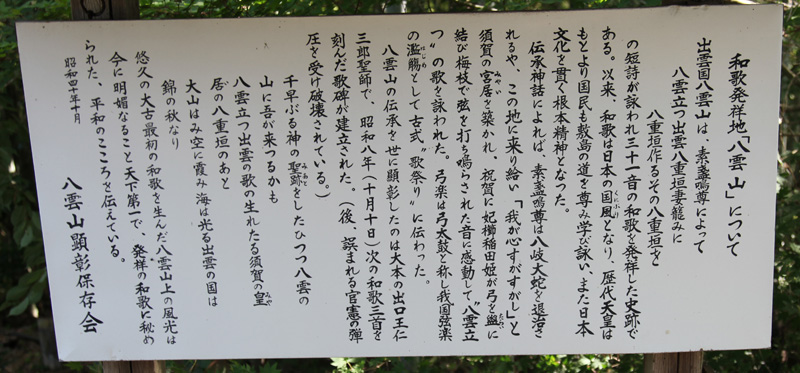 和歌発祥地「八雲山」について
出雲国八雲山は、素盞嗚尊によって
八雲立つ出雲八重垣妻籠みに
八重垣作るその八重垣を
の短詩が詠われ三十一音の和歌を発祥した史跡で
ある。以来、和歌は日本の国風となり、歴代天皇は
もとより国民も敷島の道を尊み学び詠い、また日本
文化を貫く根本精神となった。
伝承神話によれば、素盞嗚尊は八岐大蛇を退治さ
れるや、この地に来り給い「我が心すがすがし」と
須賀の宮居を築かれ、祝賀に妃櫛稲田姫が弓を盥に
結び梅枝で弦を打ち鳴らされた音に感動して〝八雲立
つ〟の歌を詠われた。弓楽は弓太鼓と称し我国弦楽
の濫觴として古式〝歌祭り〟に伝わった。
八雲山の伝承を世に顕彰したのは大本の出口王仁
三郎聖師で、昭和八年(十月十日)次の和歌三首を
刻んだ歌碑が建立された。(後、誤まれる官憲の弾
圧を受け破壊されている。)
千早ぶる神の聖跡をしたひつつ八雲の
山に吾が来つるかも
八雲立つ出雲の歌の生れたる須賀の皇
居の八重垣のあと
大山はみ空に霞み海は光る出雲の国は
錦の秋なり
悠久の太古最初の和歌を生んだ八雲山上の風光は
今に明媚なること天下第一で、発祥の和歌に秘め
られた、平和のこころを伝えている。
昭和四十年十月
八雲山顕彰保存会